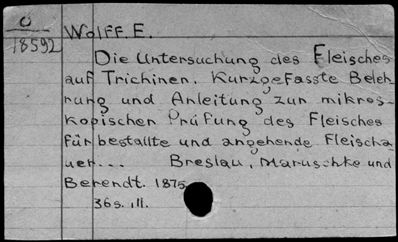 O
18592
Wolff. E.
Die Untersuchung des Fleisches
auf Trichinen. Kurzgefasste Beleh
rung und Anleitung zur mikros-
kopischen Prüfung des Fleisches
für bestallte und angehende Fleischa
uer... Breslau, Maruschke und
Berendt. 1875
36s. ill.